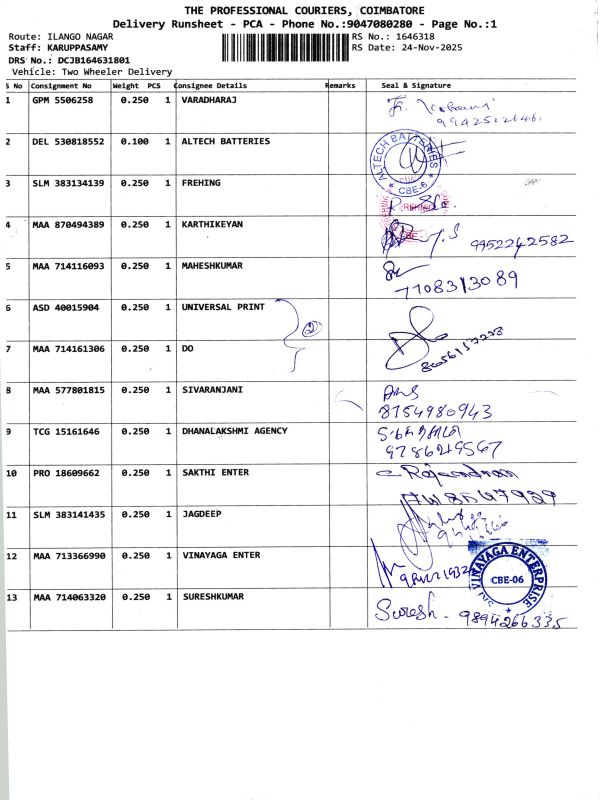 THE PROFESSIONAL COURIERS, COIMBATORE
Delivery Runsheet - PCA - Phone No.:9047080280 - Page No.:1
Route: ILANGO NAGAR RS No.: 1646318
Staff: KARUPPASAMY RS Date: 24-Nov-2025
DRS No.: DCJB164631801
Vehicle: Two Wheeler Delivery
S No Consignment No Weight PCS Consignee Details Remarks Seal & Signature
1 GPM 5506258 0.250 1 VARADHARAJ
2 DEL 530818552 0.100 1 ALTECH BATTERIES
ALTECH BATTERIES CBE-6
3 SLM 383134139 0.250 1 FREHING
4 MAA 870494389 0.250 1 KARTHIKEYAN 9952242582
5 MAA 714116093 0.250 1 MAHESHKUMAR
7708313089
6 ASD 40015904 0.250 1 UNIVERSAL PRINT
2
7 MAA 714161306 0.250 1 DO
8 MAA 577801815 0.250 1 SIVARANJANI
8754980943
9 TCG 15161646 0.250 1 DHANALAKSHMI AGENCY
9786249567
10 PRO 18609662 0.250 1 SAKTHI ENTER
11 SLM 383141435 0.250 1 JAGDEEP
12 MAA 713366990 0.250 1 VINAYAGA ENTER
VINAYAGA ENTERPRISE CBE-06
13 MAA 714063320 0.250 1 SURESHKUMAR Suresh - 9894266335